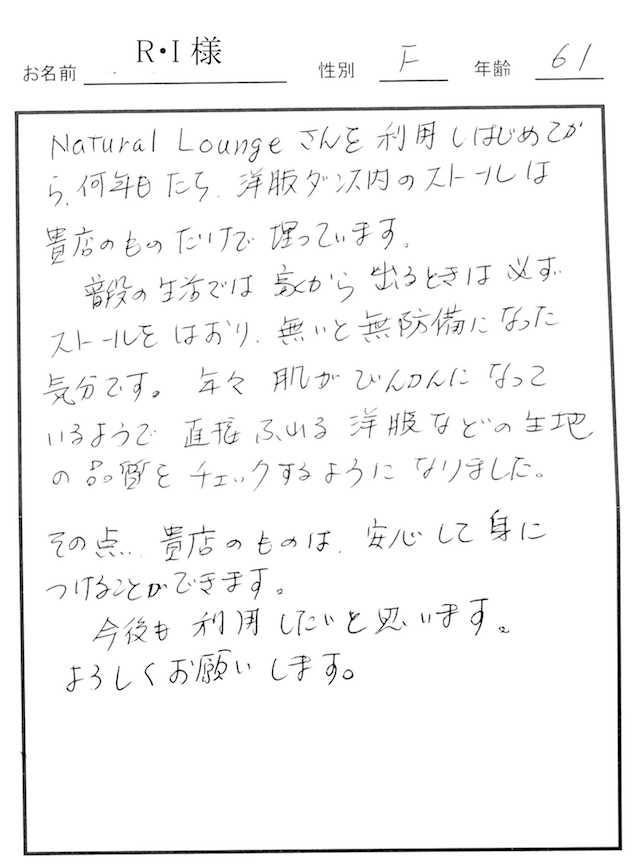 お名前 R・I 様 性別 F 年齢 61
Natural Lounge さんを 利用 しはじめてか
ら、何年目 たち、洋服ダンス内のストールは
貴店のものだけで 埋っています。
普段の生活では 家から 出るときは 必ず
ストールを はおり、無いと無防備になった
気分です。 年々 肌が びんかんに なって
いるようで 直接 ふれる 洋服などの生地
の 品質を チェックするように なりました。
その点、貴店のものは、安心して 身に
つけることができます。
今後も 利用 したいと 思います。
よろしくお願いします。